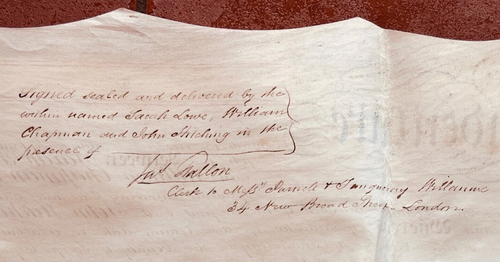 Signed sealed and delivered by the
within named Sarah Lowe, William
Chapman and John Stirling in the
presence of
Clerk to Mess.rs & Tanqueray
34 New Broad Street London